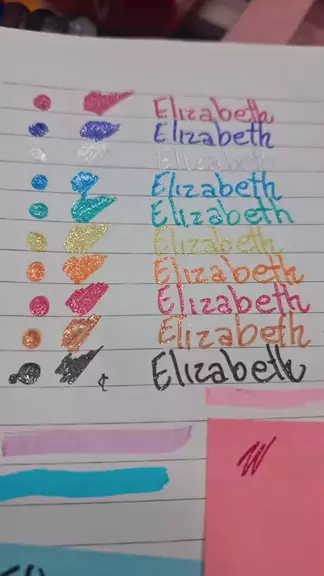 Elizabeth
Elizabeth
Elizabeth
Elizabeth
Elizabeth
Elizabeth
Elizabeth
Elizabeth
Elizabeth
Elizabeth